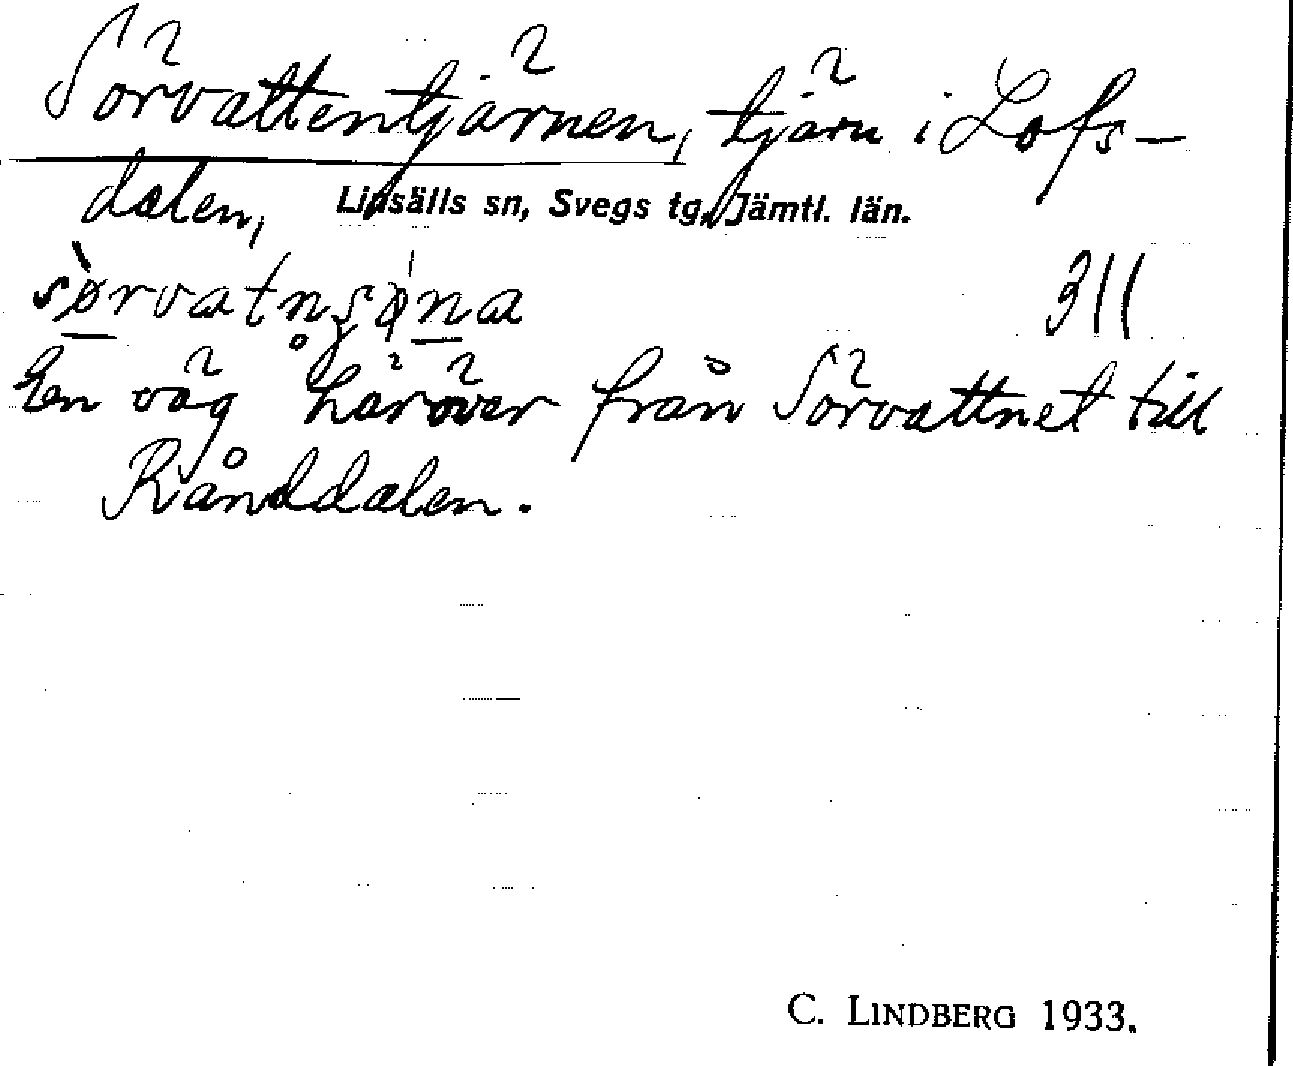 Sörvattentjärnen, tjärn i Lofs-
dalen, Linsälls sn, Svegs tg, Jämtl. län.
311
En väg häröver från Sörvattnet till
Rånddalen.
C. LINDBERG 1933.